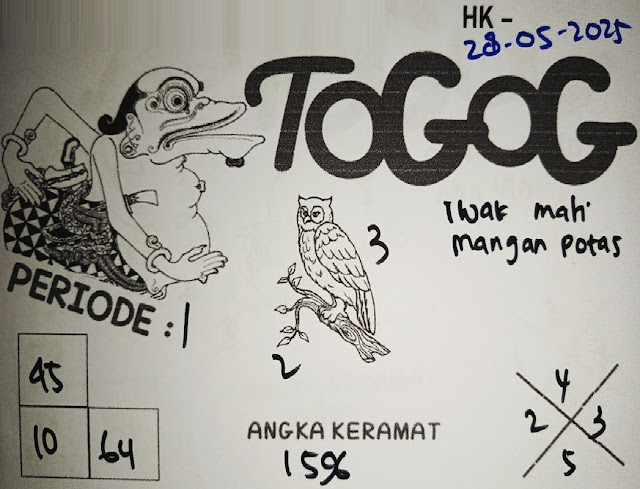 HK -
28-05-2025
TOGOG
Iwak mati
mangan potas
3
PERIODE : 1
2
45
10 64
ANGKA KERAMAT
1596
4
2 3
5